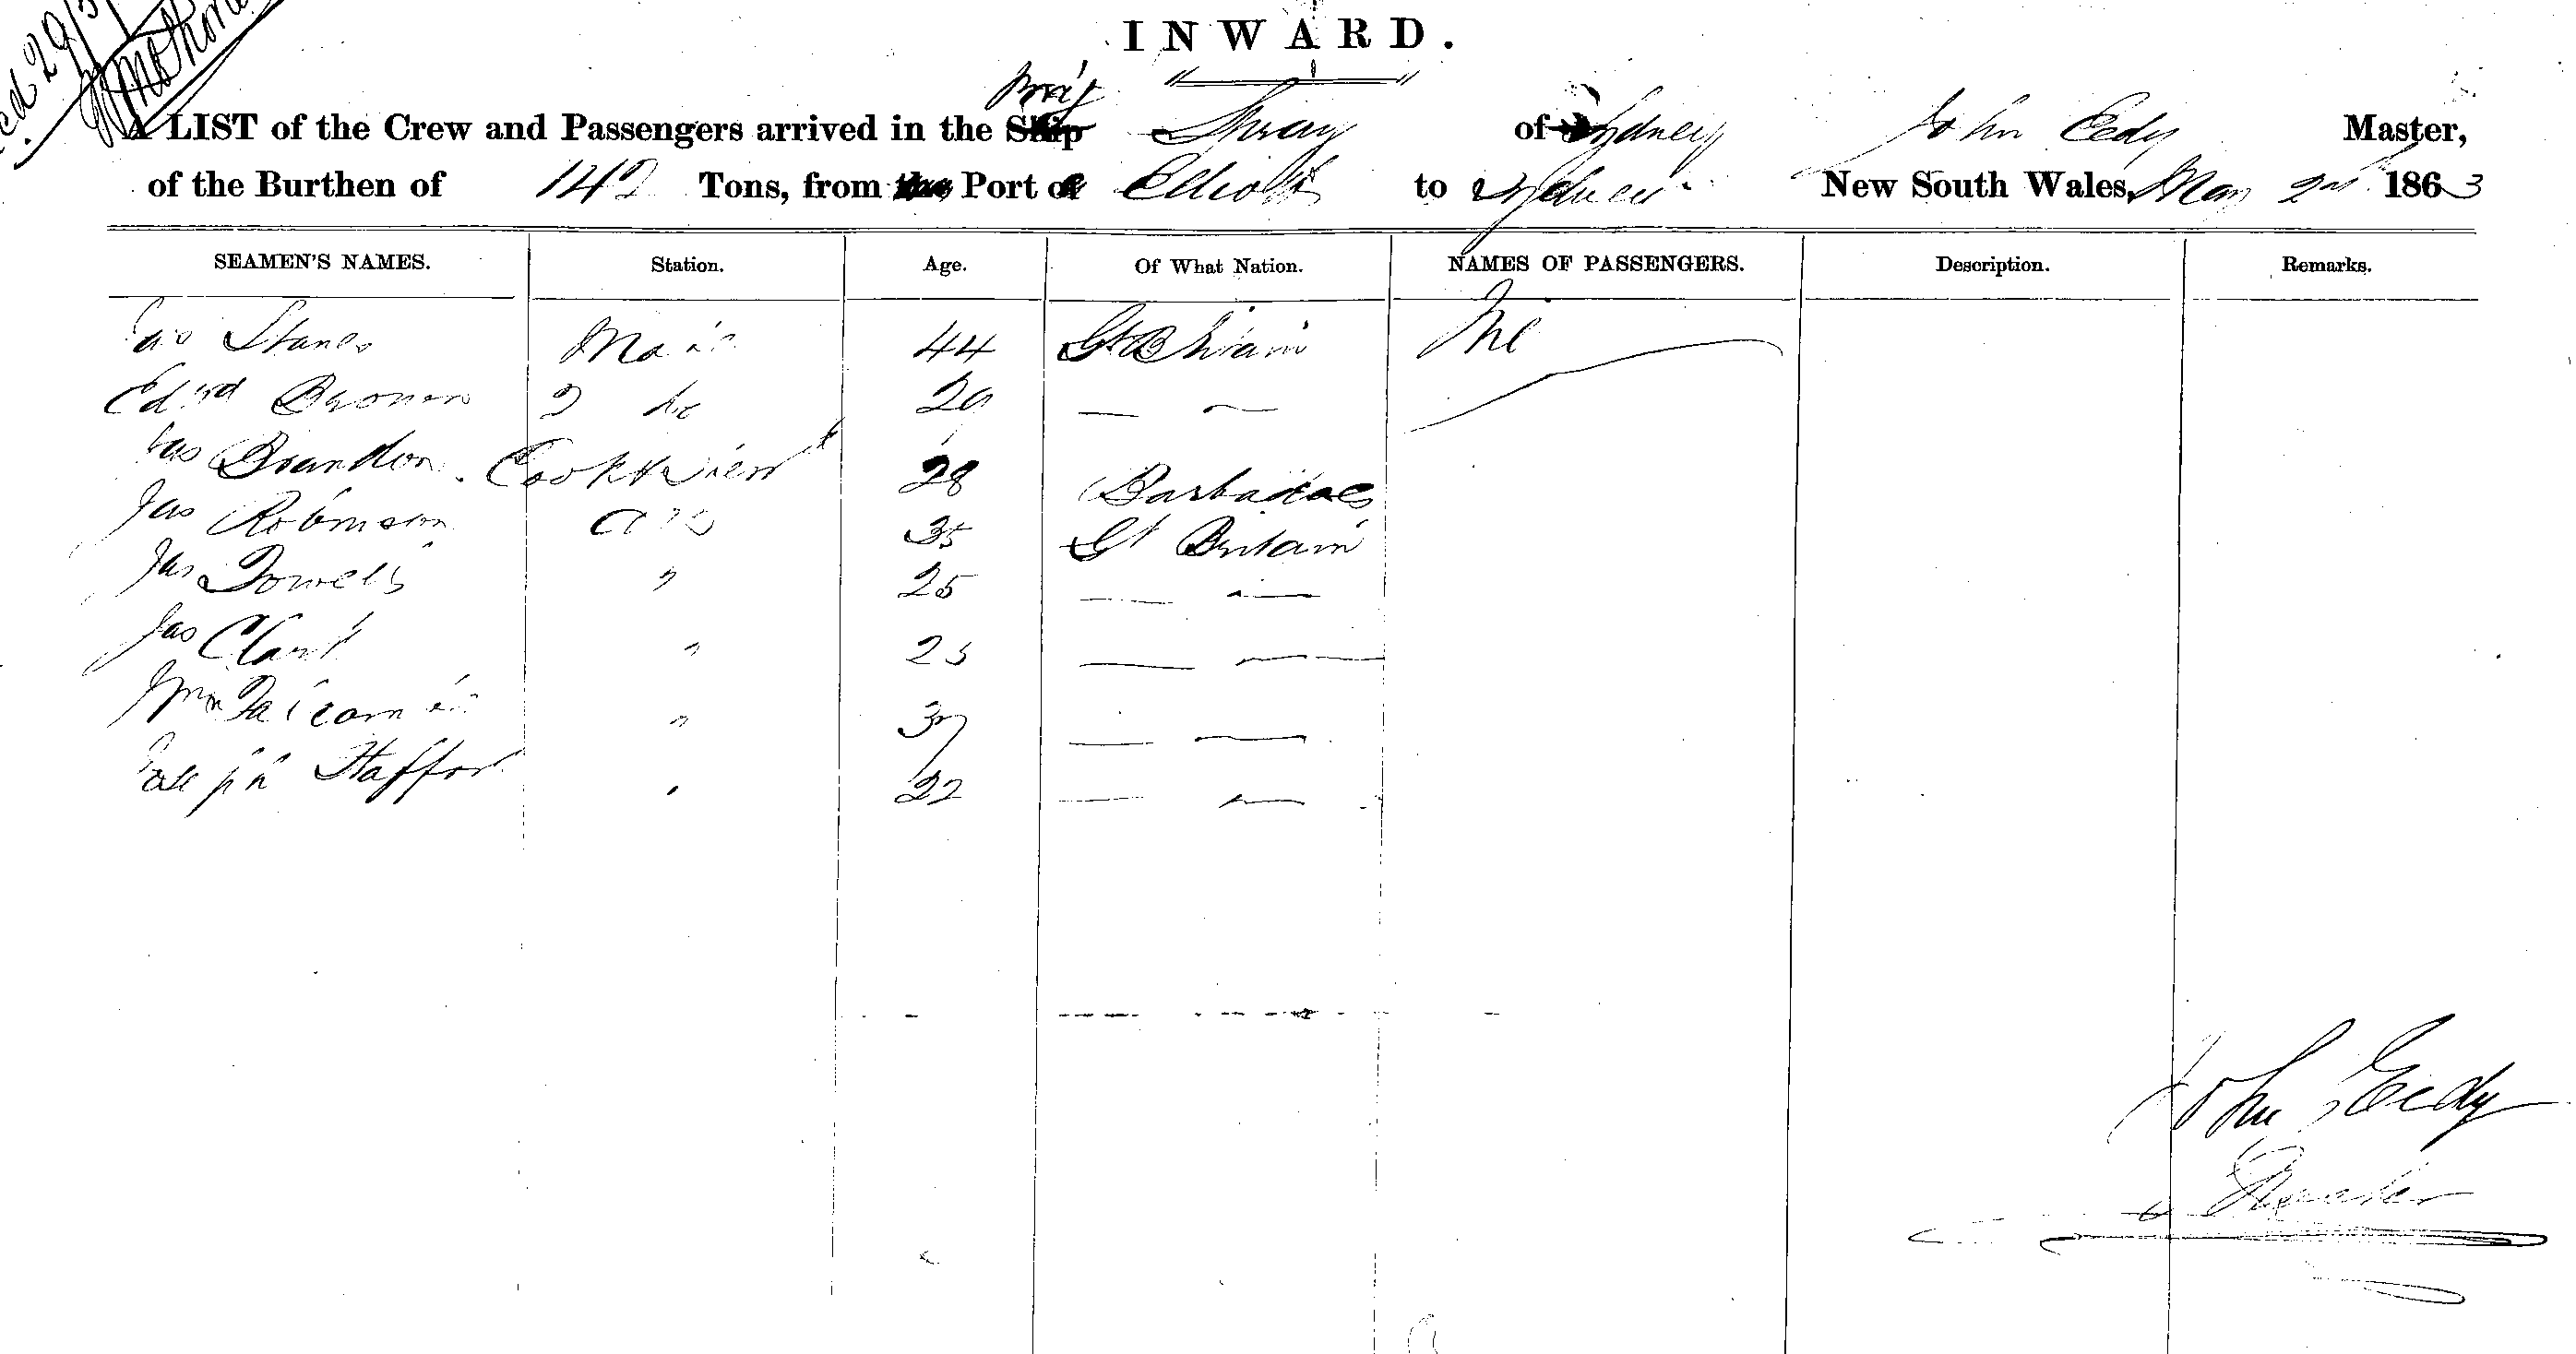 INWARD.
A LIST of the Crew and Passengers arrived in the Ship Brig of Sydney John Eedy Master,
of the Burthen of 142 Tons, from the Port of Elliott to Sydney New South Wales, May 2nd 1863
SEAMEN'S NAMES. Station. Age. Of What Nation. NAMES OF PASSENGERS. Description. Remarks.
Jas Mate 44 Gt Britain Nil
Edwd Brown 2 do 20 — —
Jas Brandon Cook & Steward 28 Barbadoes
Jas Robinson AB 35 Gt Britain
Jas Powells " 25 — —
Jas Clark " 25 — —
Wm " 37 — —
Joseph Staffor " 22 — —
John Eedy
Master